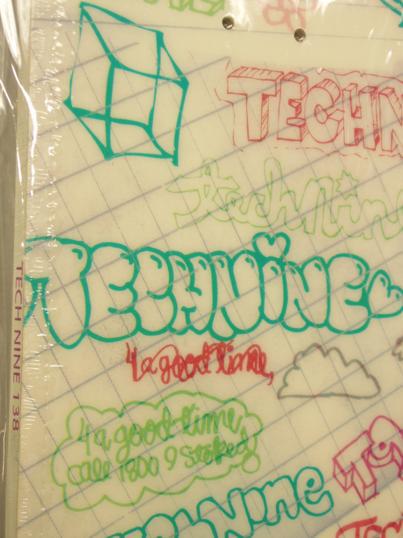 TECHN
technine
TECHNiNE
4 a good time,
4 a good time,
call 1800 9 stoked
Nine
TECH NINE 138